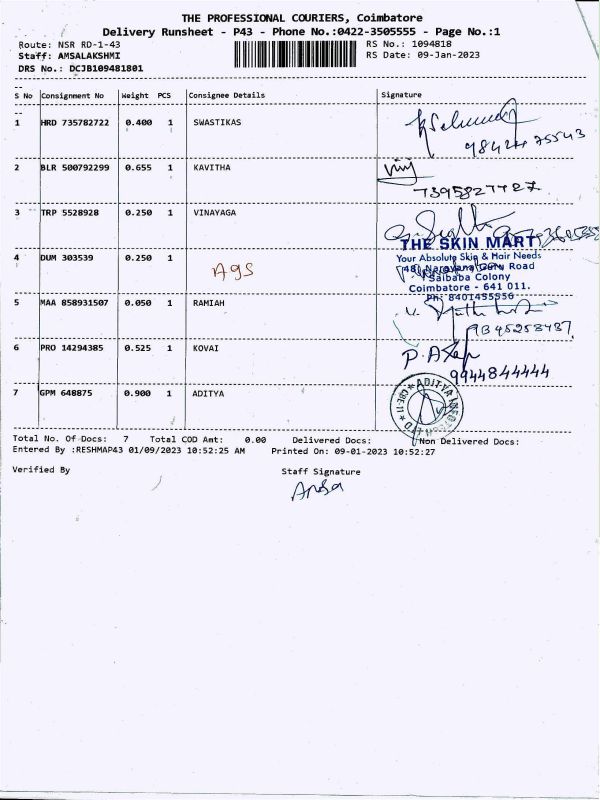 THE PROFESSIONAL COURIERS, Coimbatore
Delivery Runsheet - P43 - Phone No.:0422-3505555 - Page No.:1
Route: NSR RD-1-43 RS No.: 1094818
Staff: AMSALAKSHMI RS Date: 09-Jan-2023
DRS No.: DCJB109481801
S No Consignment No Weight PCS Consignee Details Signature
1 HRD 735782722 0.400 1 SWASTIKAS
2 BLR 500792299 0.655 1 KAVITHA
7395827727
3 TRP 5528928 0.250 1 VINAYAGA
THE SKIN MART
4 DUM 303539 0.250 1 AGS
Your Absolute Skin & Hair Needs
Saibaba Colony
Coimbatore - 641 011.
Ph: 8401455556
5 MAA 858931507 0.050 1 RAMIAH
6 PRO 14294385 0.525 1 KOVAI
9944844444
7 GPM 648875 0.900 1 ADITYA
Total No. Of Docs: 7 Total COD Amt: 0.00 Delivered Docs: Non Delivered Docs:
Entered By :RESHMAP43 01/09/2023 10:52:25 AM Printed On: 09-01-2023 10:52:27
Verified By Staff Signature